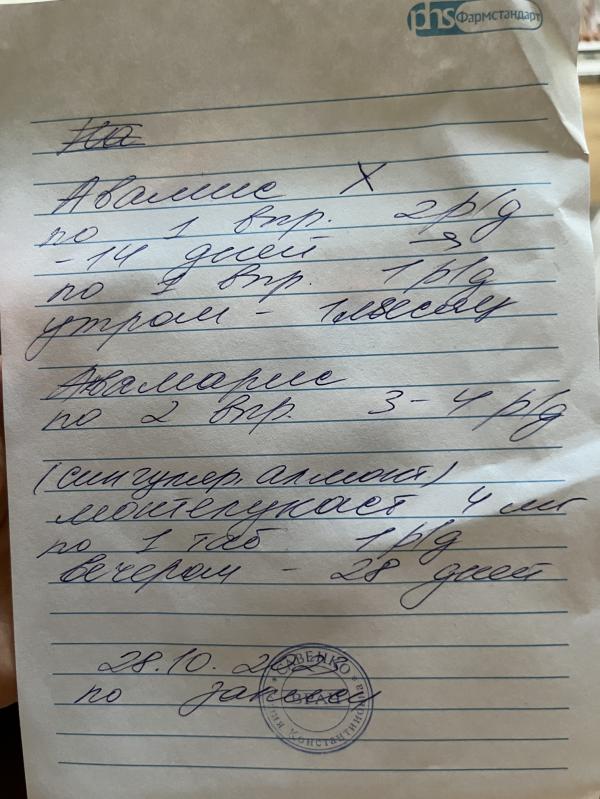 phs Фармстандарт
На
Авамис X
по 1 впр. 2 р/д
-14 дней →
по 1 впр. 1 р/д
утром - 1 месяц
Аквамарис
по 2 впр. 3-4 р/д
(сингуляр, алмонт)
монтелукаст 4 мг
по 1 таб 1 р/д
вечером - 28 дней
28.10.
по записи
САВЕНКО
ВРАЧ
Константиновна